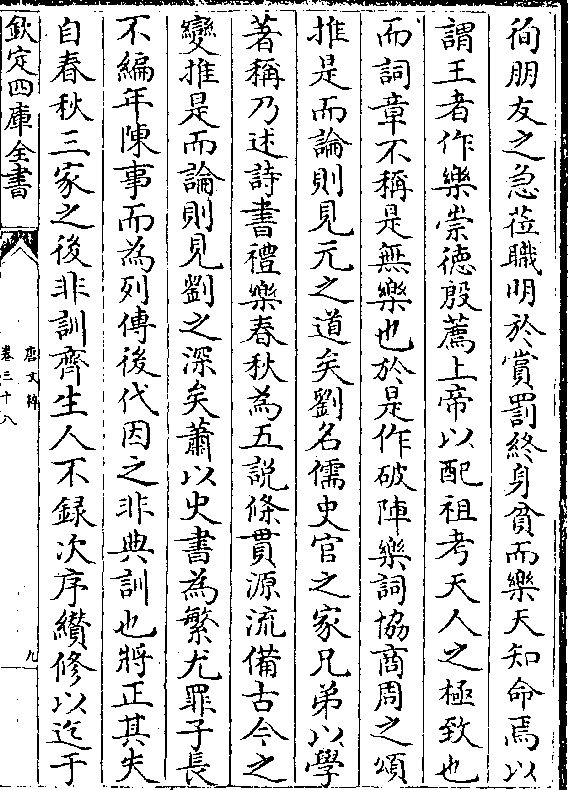 徇朋友之急蒞職明於賞罰終身貧而樂天知命焉以
謂王者作樂崇德殷薦上帝以配祖考天人之極致也
而詞章不稱是無樂也於是作破陣樂詞協商周之頌
推是而論則見元之道矣劉名儒史官之家兄弟以學
著稱乃述詩書禮樂春秋為五說條貫源流備古今之
變推是而論則見劉之深矣蕭以史書為繁尤罪子長
不編年陳事而為列傳後代因之非典訓也將正其失
自春秋三家之後非訓齊生人不録次序纘修以迄于
欽定四庫全書
唐文粹
卷三十八
九